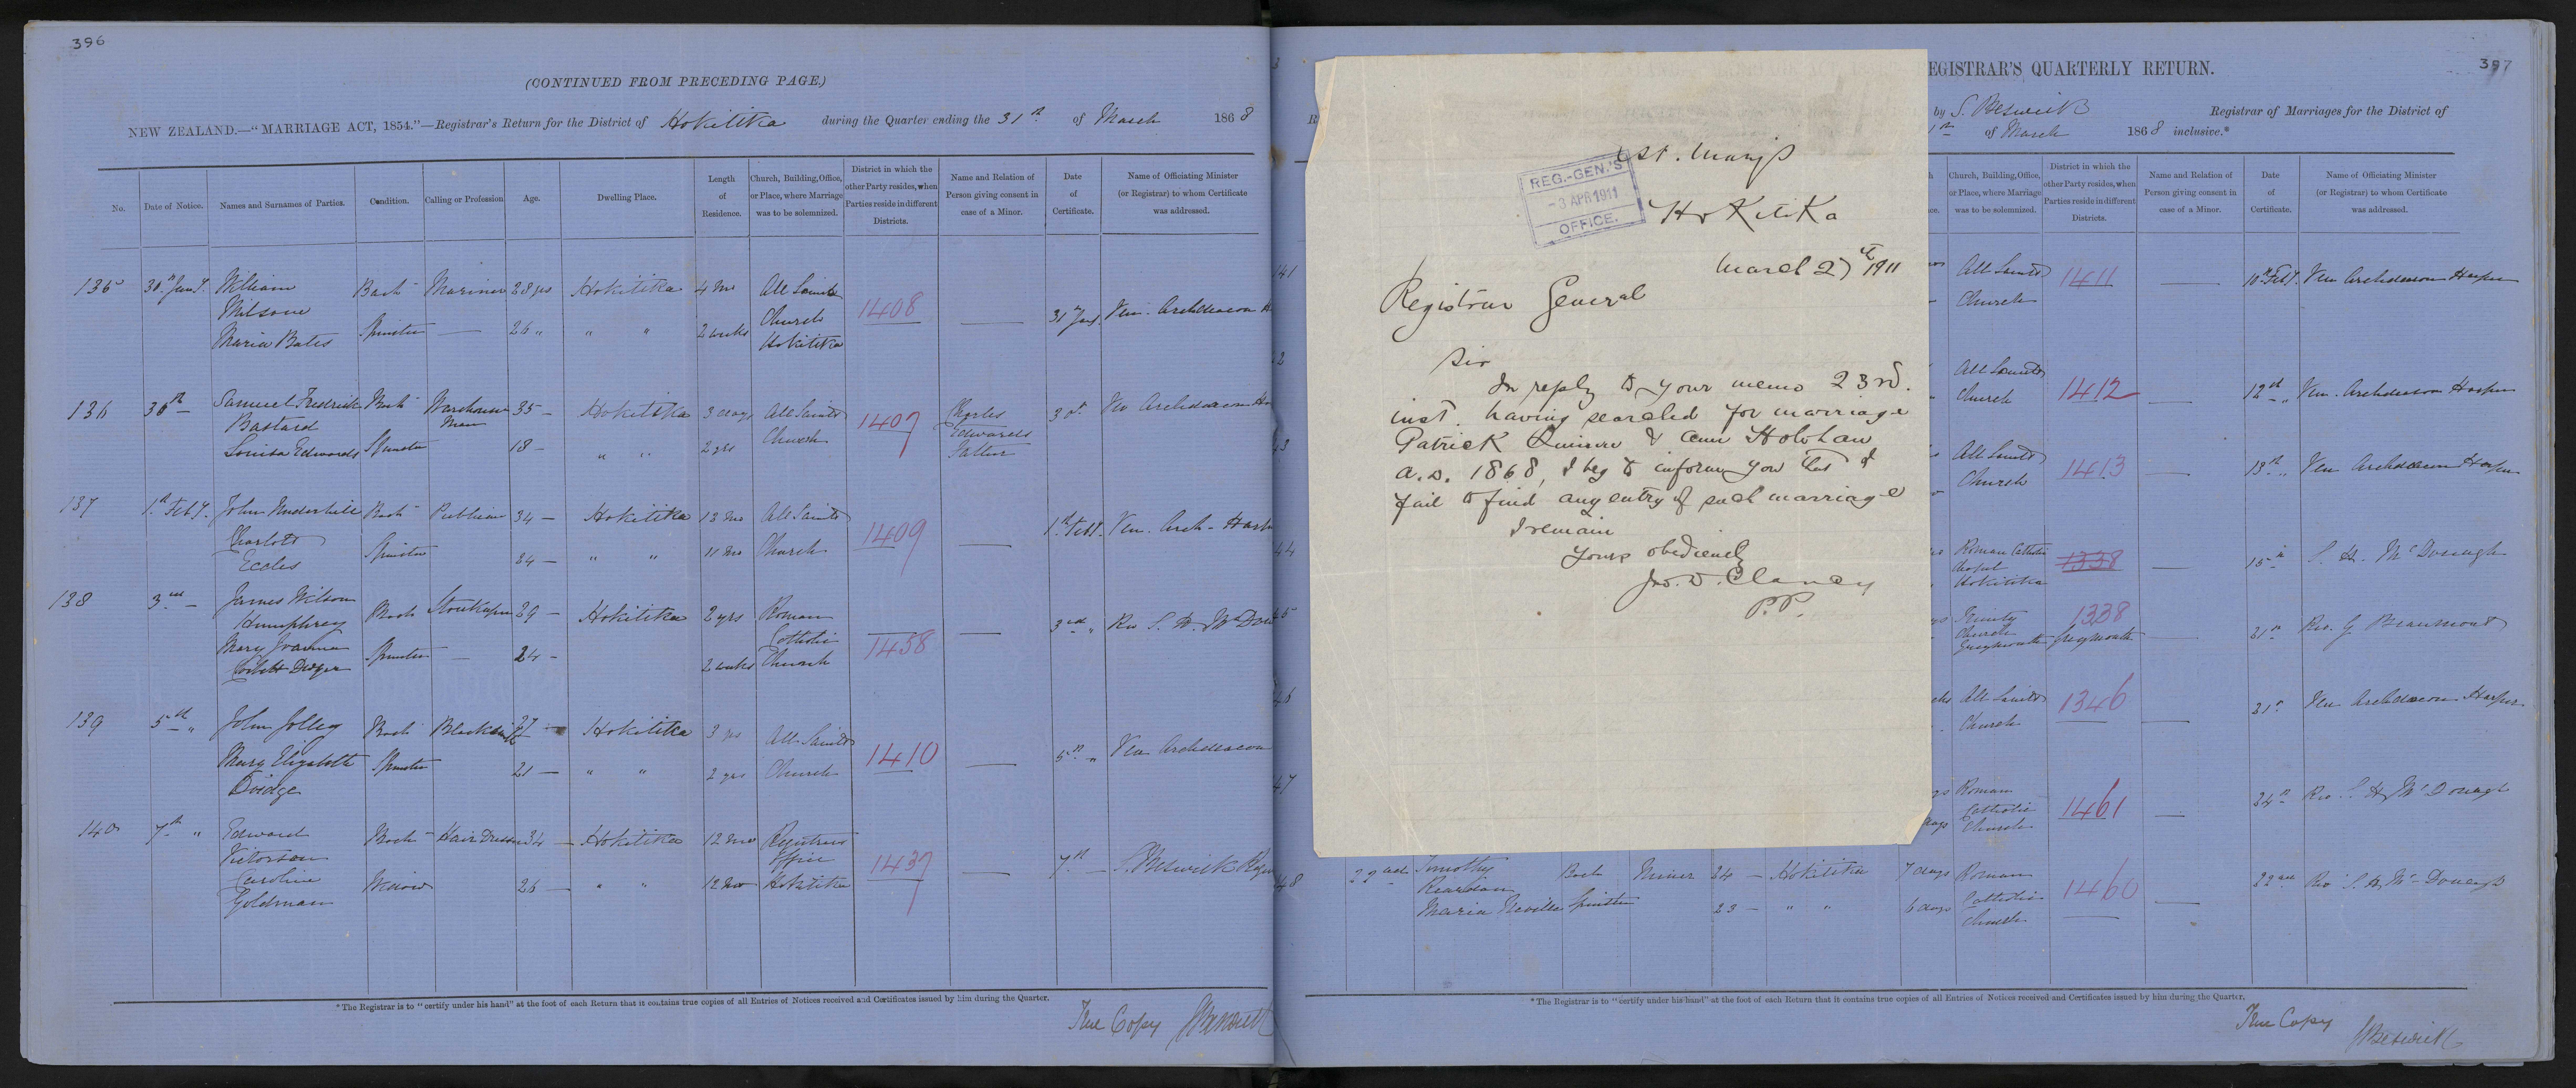 396
(CONTINUED FROM PRECEDING PAGE.)
NEW ZEALAND.—"MARRIAGE ACT, 1854."—Registrar's Return for the District of Hokitika during the Quarter ending the 31st of March 1868
No. Date of Notice. Names and Surnames of Parties. Condition. Calling or Profession Age. Dwelling Place. Length of Residence. Church, Building, Office, or Place, where Marriage was to be solemnized. District in which the other Party resides, when Parties reside in different Districts. Name and Relation of Person giving consent in case of a Minor. Date of Certificate. Name of Officiating Minister (or Registrar) to whom Certificate was addressed.
135 30th Jany. William Bach Mariner 28 yrs Hokitika 4 mo All Saints 1408 — 31 Jany. Ven. Archdeacon H
Milsom Church
Maria Bates Spinster — 26 " " " 2 weeks Hokitika
136 30th — Samuel Frederick Bach Warehouse 35 — Hokitika 3 days All Saints 1407 Charles 3 Ven Archdeacon Ha
Bastard man Church Edwards
Louisa Edwards Spinster 18 — " " 2 yrs Father
137 1st Feby. John Underhill Bach Publican 34 — Hokitika 18 mo All Saints 1409 — 1st Feby. Ven. Arch - Harp
Charlotte
Eccles Spinster 34 — " " 11 mo Church
138 3rd — James Wilson Bach Storekeeper 39 — Hokitika 2 yrs Roman — — 3rd " Rev S. H. McDon
Humphrey Catholic 1458
Mary Joanna Spinster — 24 - 2 weeks Church
139 5th " John Jolley Bach Blacksmith 27 — Hokitika 3 yrs All Saints 1410 — 5th " Ven Archdeacon
Mary Elizabeth Spinster 21 — " " 2 yrs Church
140 7th " Edward Bach Hair Dresser 34 — Hokitika 12 mo Registrars 1437 — 7th — S. Beswick Regis
Victorson Office
Caroline Widow 26 — " " 12 mo Hokitika
Goldman
*The Registrar is to "certify under his hand" at the foot of each Return that it contains true copies of all Entries of Notices received and Certificates issued by him during the Quarter.
True Copy S Beswick
397
EGISTRAR'S QUARTERLY RETURN.
by S. Beswick Registrar of Marriages for the District of
of March 1868 inclusive.*
Church, Building, Office, or Place, where Marriage was to be solemnized. District in which the other Party resides, when Parties reside in different Districts. Name and Relation of Person giving consent in case of a Minor. Date of Certificate. Name of Officiating Minister (or Registrar) to whom Certificate was addressed.
41 All Saints 1411 — 10th Feby. Ven Archdeacon Harper
Church
2 All Saints
Church 1412 — 12th " Ven. Archdeacon Harper
43 All Saints 1413 — 13th " Ven Archdeacon Harper
Church
44 Roman Catholic 1338 — 15th S. H. McDonagh
Chapel
Hokitika
45 Trinity 1338
Church Greymouth — 21st Rev. G Beaumont
Greymouth
46 All Saints 1346 — 21st Ven Archdeacon Harper
Church
47 Roman
Catholic 1461 — 24th Rev. S. H. McDonagh
Church
48 22nd Timothy Bach Miner 24 — Hokitika 7 days Roman 1460 — 22nd Rev S. H. McDonagh
Reardon Catholic
Maria Neville Spinster 23 — " " 6 days Church
*The Registrar is to "certify under his hand" at the foot of each Return that it contains true copies of all Entries of Notices received and Certificates issued by him during the Quarter.
True Copy
S Beswick
REG.-GEN.'S
-3 APR 1911
OFFICE.
St. Mary's
Hokitika
March 27th 1911
Registrar General
Sir
In reply to your memo 23rd.
inst. having searched for marriage
Patrick & Ann Holohan
A.D. 1868, I beg to inform you that I
fail to find any entry of such marriage
I remain
Yours obediently
Jno. D. Clancy
P.P.